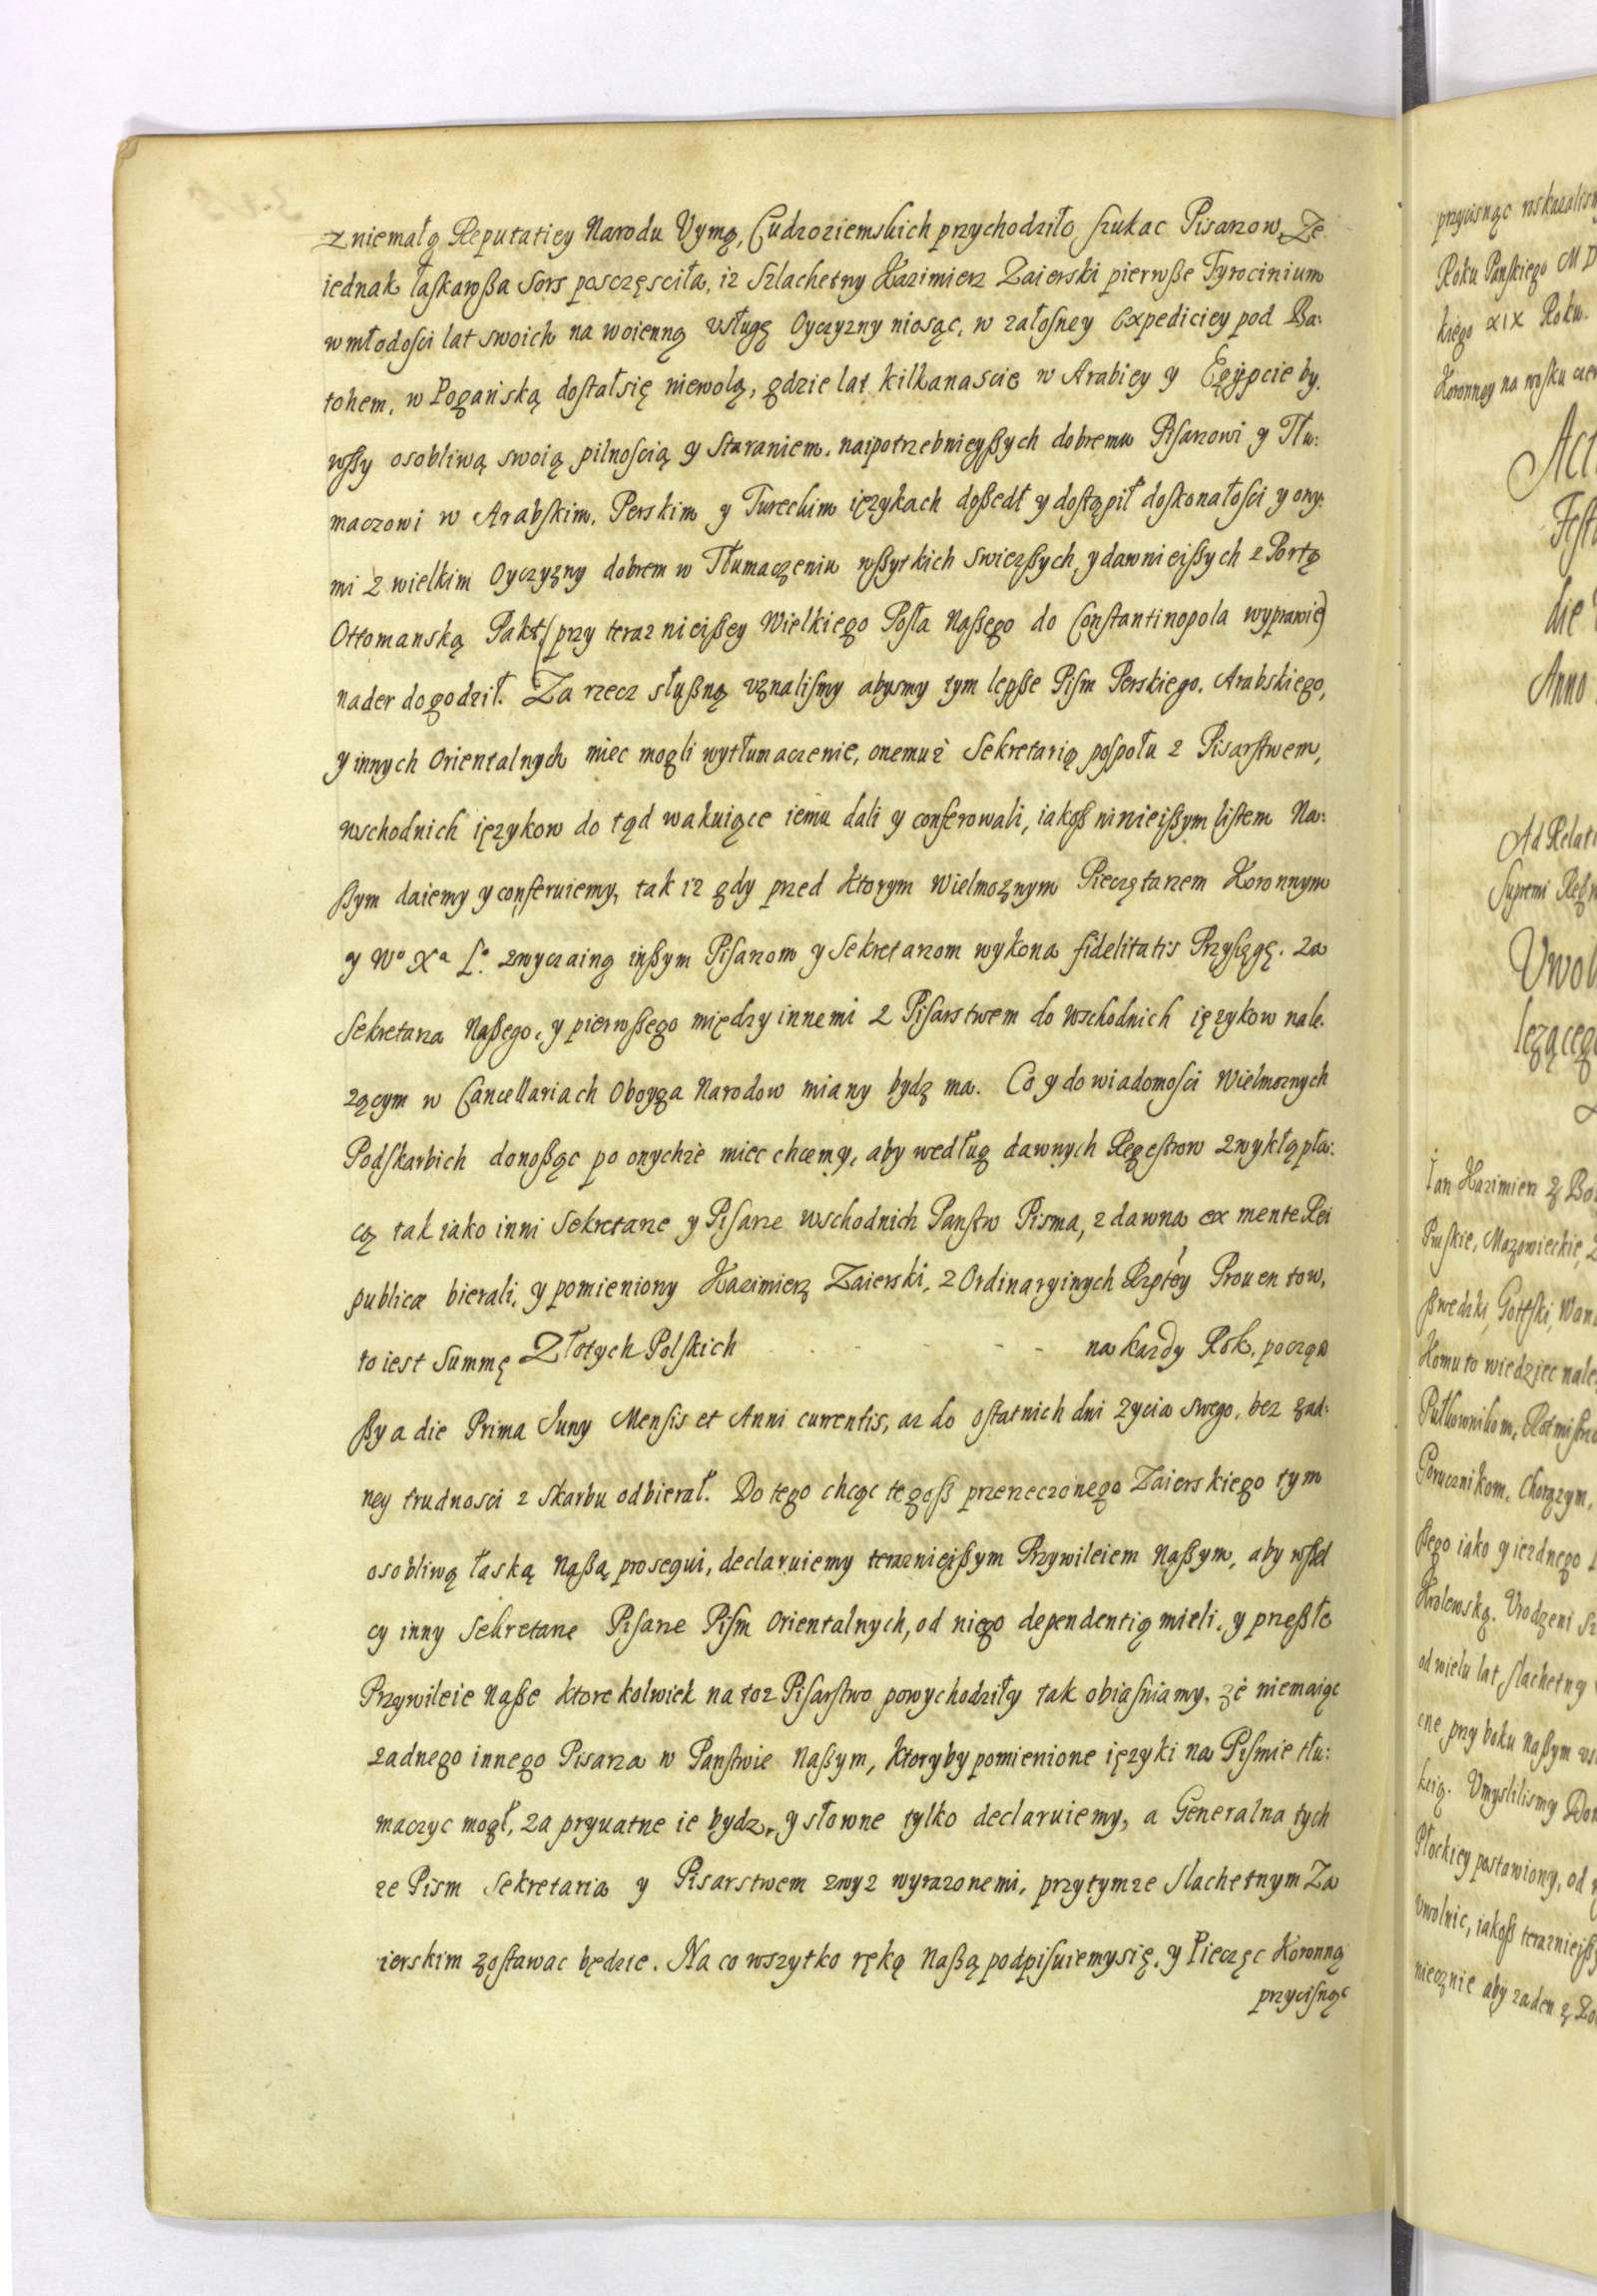 z niemałą Reputatiey Narodu Vymą, Cudzoziemskich przychodziło szukac Pisarzow. Ze
iednak łaskawßa Sors posczęsciła, iz Szlachetny Kazimierz Zaierski pierwße Tyrocinium
w młodosci lat swoich na woienną vsługę Oyczyzny niosąc, w załosney Expediciey pod Ba:
tohem, w Pogańską dostał się niewolą, gdzie lat kilkanascie w Arabiey y Egÿpcie by.
wßy osobliwą swoią pilnoscią y Staraniem. naipotrzebnieyßych dobremu Pisarzowi y Tłu:
maczowi w Arabskim, Perskim y Tureckim ięzykach doßedł y dostąpił doskonałosci y ony:
mi z wielkim Oyczyzny dobrem w Tłumaczeniu wßytkich swiezßych, y dawnieißych z Portą
Ottomanską Pakt, (przy teraznieißey Wielkiego Posła Naßego do Constantinopola wyprawie)
nader dogodził. Za rzecz słußną vznalismy abysmy tym lepße Pism Perskiego, Arabskiego,
y innych Orientalnych miec mogli wytłumaczenie, onemuż Sekretarią pospołu z Pisarstwem,
wschodnich ięzykow do tąd wakuiące iemu dali y conferowali, iakoß ninieißym listem Na:
ßym daiemy y conferuiemy, tak iz gdy przed ktorym Wielmoznym Pieczętarzem Koronnym
y Wº Xª Lº. zwyczaing inßym Pisarzom y Sekretarzom wykona fidelitatis Przysięgę. za
Sekretarza Naßego, y pierwßego między innemi z Pisarstwem do Wschodnich ięzykow nale.
zącym w Cancellariach Oboyga Narodow miany bydz ma. Co y do wiadomosci Wielmoznych
Podskarbich donoßąc po onychże miec chcemy, aby według dawnych Regestrow zwykłą pła:
cą tak iako inni Sekretarze y Pisarze wschodnich Panstw Pisma, z dawna ex mente Rei
publicæ bierali, y pomieniony Kazimierz Zaierski, z Ordinaryinych Rzptéy Prouentow,
to iest Summę Złotych Polskich - - - na kazdy Rok, począw
ßy a die Prima Juny Mensis et Anni currentis, az do ostatnich dni zycia swego, bez zad:
ney trudnosci z Skarbu odbierał. Do tego chcąc tegoß przerzeczonego Zaierskiego tym
osobliwą łaską Naßą prosequi, declaruiemy teraznieißym Przywileiem Naßym, aby wßel
cy inny Sekretarze Pisarze Pism Orientalnych, od niego dependentią mieli, y przeßłe
Przywileie Naße ktorekolwiek na toz Pisarstwo powychodziły tak obiasniamy, że niemaiąc
zadnego innego Pisarza w Panstwie Naßym, ktoryby pomienione ięzyki na Pismie tłu:
maczyc mogł, za pryuatne ie bydz, y słowne tylko declaruiemy, a Generalna tych
ze Pism Sekretaria y Pisarstwem zwyz wyrazonemi, przytymze Slachetnym Za
ierskim zostawac będzie. Na co wszytko ręką Naßą podpisuiemysię, y Pieczęc Koronną
przycisnąc
przycisnąc rozkazalism
Roku Panskiego MD
kiego XIX Roku.
Act
Fest
die
Anno
Ad Relati
Supremi Regn
Vwol
lezącego
Jan Kazimierz z Bo
Pruskie, Mazowieckie,
ßwedzki, Gottski, Wan
Komu to wiedziec nale
Pułkownikom, Rotmistrz
Porucznikom, Chorązym,
ßego iako y iezdnego
Krolewską. Vrodzeni
od wielu lat slachetny
cne przy boku Naßym
Vmyslilismy
Płockiey postawiony, od
vwolnic, iakoß teraznieiß
niecznie aby zaden z